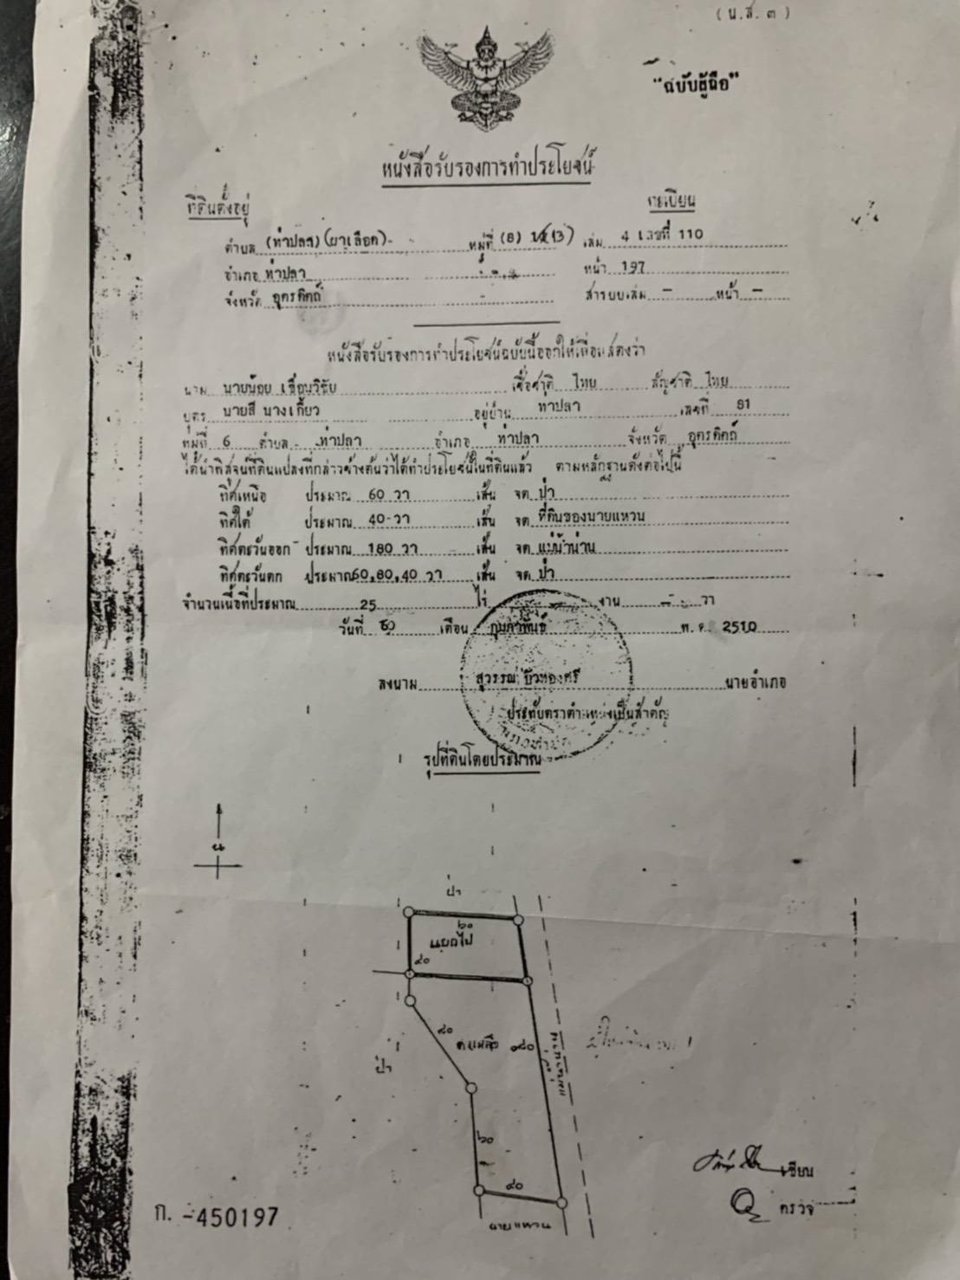 (น.ส.๓)
"ฉบับผู้ถือ"
หนังสือรับรองการทำประโยชน์
ที่ดินตั้งอยู่ ทะเบียน
ตำบล (ท่าปลา) (ผาเลือด) หมู่ที่ (8) (3) เล่ม 4 เลขที่ 110
อำเภอ ท่าปลา หน้า 197
จังหวัด อุตรดิตถ์ - สารบบเล่ม - หน้า -
หนังสือรับรองการทำประโยชน์ฉบับนี้ออกให้เพื่อแสดงว่า
นาม นายน้อย เขื่อนวิชัย เชื้อชาติ ไทย สัญชาติ ไทย
บุตร นายสี นางเกี้ยว อยู่บ้าน ท่าปลา เลขที่ 81
หมู่ที่ 6 ตำบล ท่าปลา อำเภอ ท่าปลา จังหวัด อุตรดิตถ์
ได้นำพิสูจน์ที่ดินแปลงที่กล่าวข้างต้นว่าได้ทำประโยชน์ในที่ดินแล้ว ตามหลักฐานดังต่อไปนี้
ทิศเหนือ ประมาณ 60 วา เส้น จด ป่า
ทิศใต้ ประมาณ 40 วา เส้น จด ที่ดินของนายแหวน
ทิศตะวันออก ประมาณ 180 วา เส้น จด แม่น้ำน่าน
ทิศตะวันตก ประมาณ 60,80,40 วา เส้น จด ป่า
จำนวนเนื้อที่ประมาณ 25 ไร่ - งาน - วา
วันที่ เดือน กุมภาพันธ์ พ.ศ. 2510
ลงนาม สุวรรณ บัวทองศรี นายอำเภอ
ประทับตราตำแหน่งเป็นสำคัญ
รูปที่ดินโดยประมาณ
น
ป่า
๖๐
แยกไป
๔๐
๘๐
คงเหลือ ๑๘๐
แม่น้ำน่าน
ป่า
๖๐
๔๐
นายแหวน
เขียน
ตรวจ
ก. -450197